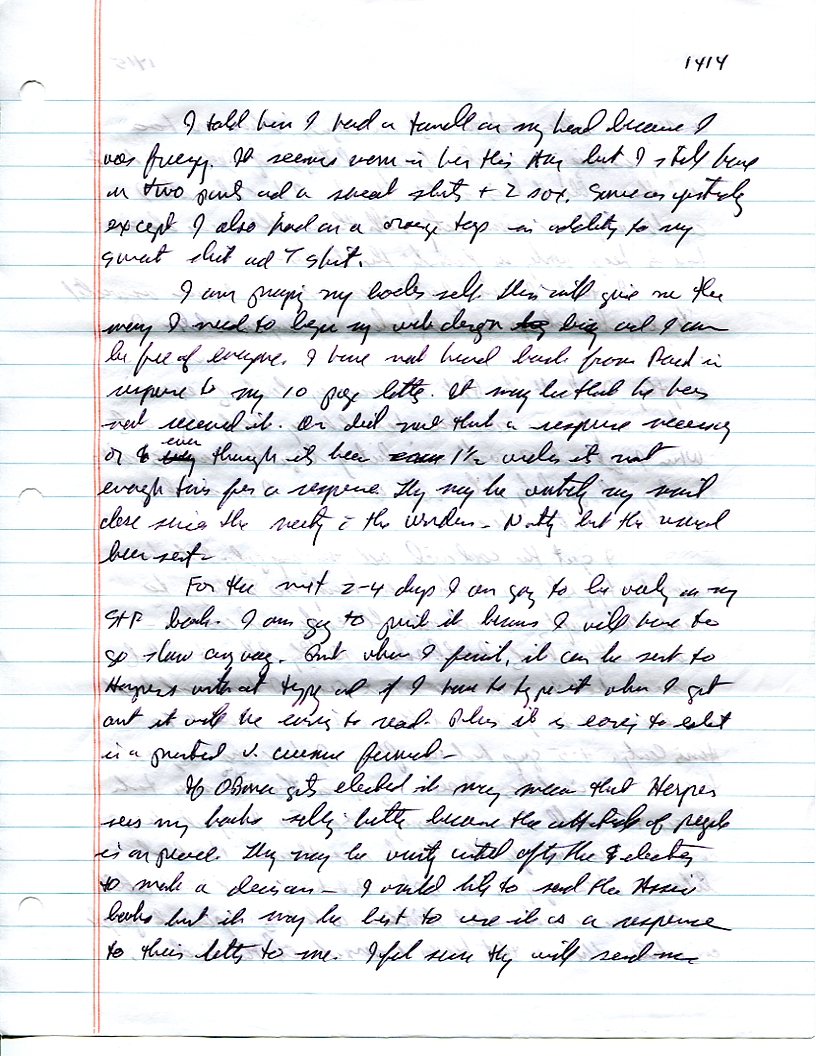 1414
I told him I had a towell on my head because I
was freezy. It seems warm in here this day but I still have
on two pants ad a sweat shirts + 2 sox. Same as yesterday
except I also had on a orange top in addity to my
sweat shirt ad T shirt.
I am praying my books sell. This will give me the
money I need to begin my web design biz ad I can
be free of everyone. I have not heard back from in
response to my 10 page letter. It may be that he has
not received it. Or did not think a response necessary
or even though its been 1½ weeks its not
enough time for a response. They may be watchg my mail
close since the meetg c the warden - but the usual
been sent -
For the next 2-4 days I am gog to be workg on my
book. I am gog to print it because I will have to
go slow anyway. But when I print, it can be sent to
Harpers without typg ad if I have to type it when I get
out it will be easier to read. Plus it is easier to edit
in a printed v. cursive format -
If Obama gets elected it may mean that Harper
sees my books sellg better because the attitude of people
is on peace. They may be waitg until after the election
to make a decision - I would like to send the
books but it may be best to use it as a response
to their letter to me. I feel sure they will send me